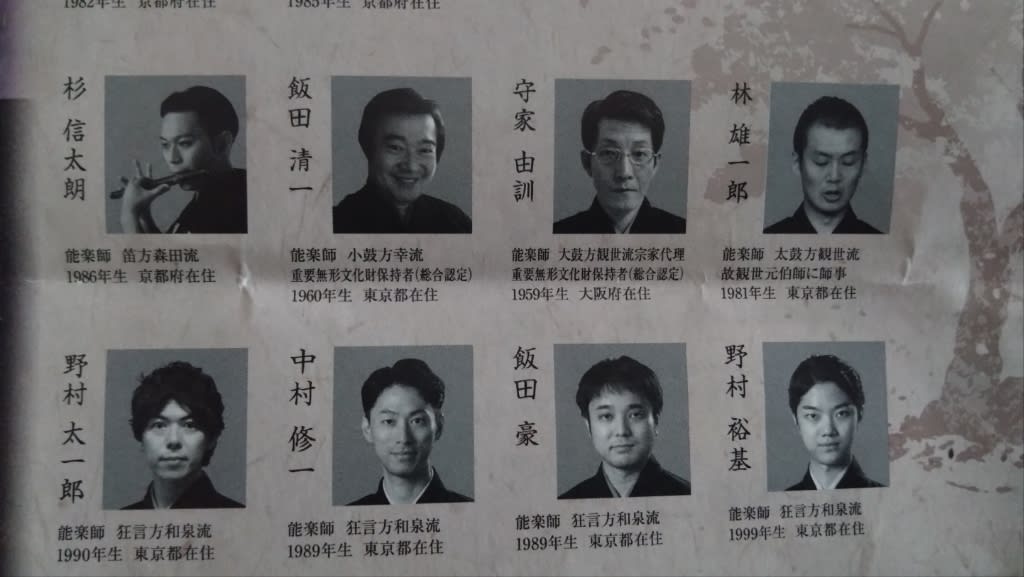 1982年生 京都府在住
1985年生 京都府在住
杉 信太朗
能楽師 笛方森田流
1986年生 京都府在住
飯田 清一
能楽師 小鼓方幸流
重要無形文化財保持者(総合認定)
1960年生 東京都在住
守家 由訓
能楽師 大鼓方観世流宗家代理
重要無形文化財保持者(総合認定)
1959年生 大阪府在住
林 雄一郎
能楽師 太鼓方観世流
故観世元伯師に師事
1981年生 東京都在住
野村 太一郎
能楽師 狂言方和泉流
1990年生 東京都在住
中村 修一
能楽師 狂言方和泉流
1989年生 東京都在住
飯田 豪
能楽師 狂言方和泉流
1989年生 東京都在住
野村 裕基
能楽師 狂言方和泉流
1999年生 東京都在住